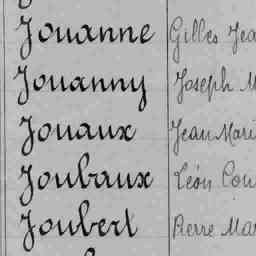 Jouanne Gilles Jea
Jouanny Joseph M
Jouaux Jean Mari
Joubaux Léon Cou
Joubert Pierre Mar